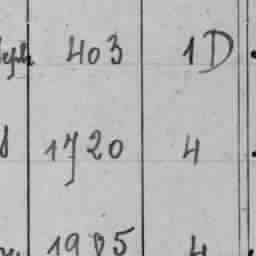 403 1D
1720 4
1985 4